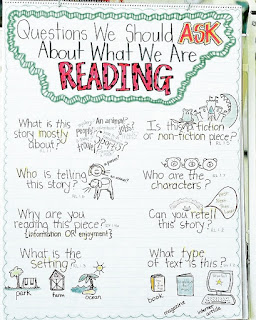 Questions We Should ASK
About What We Are
READING
What is this
story mostly
about?
An animal?
Is this a fiction
or non-fiction piece?
Who is telling
this story?
Who are the
characters?
Why are you
reading this piece?
(information OR enjoyment)
Can you retell
this story?
What is the
Setting?
park
farm
ocean
What type
of text is this?
book
magazine
internet
article